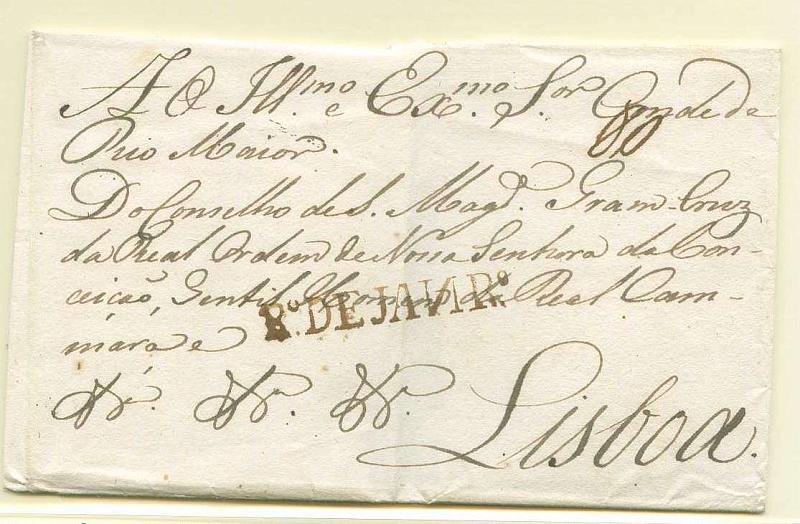 Ao Ill.mo e Ex.mo S.or Conde da
80
Rio Maior.
Do Conselho de S. Mag.e Gram-Cruz
da Real Ordem de Nossa Senhora da Con-
ceição, Gentil Homem da Real Cam-
R.o DE JAN.RO
mára e
&.a &.a &.a Lisboa.